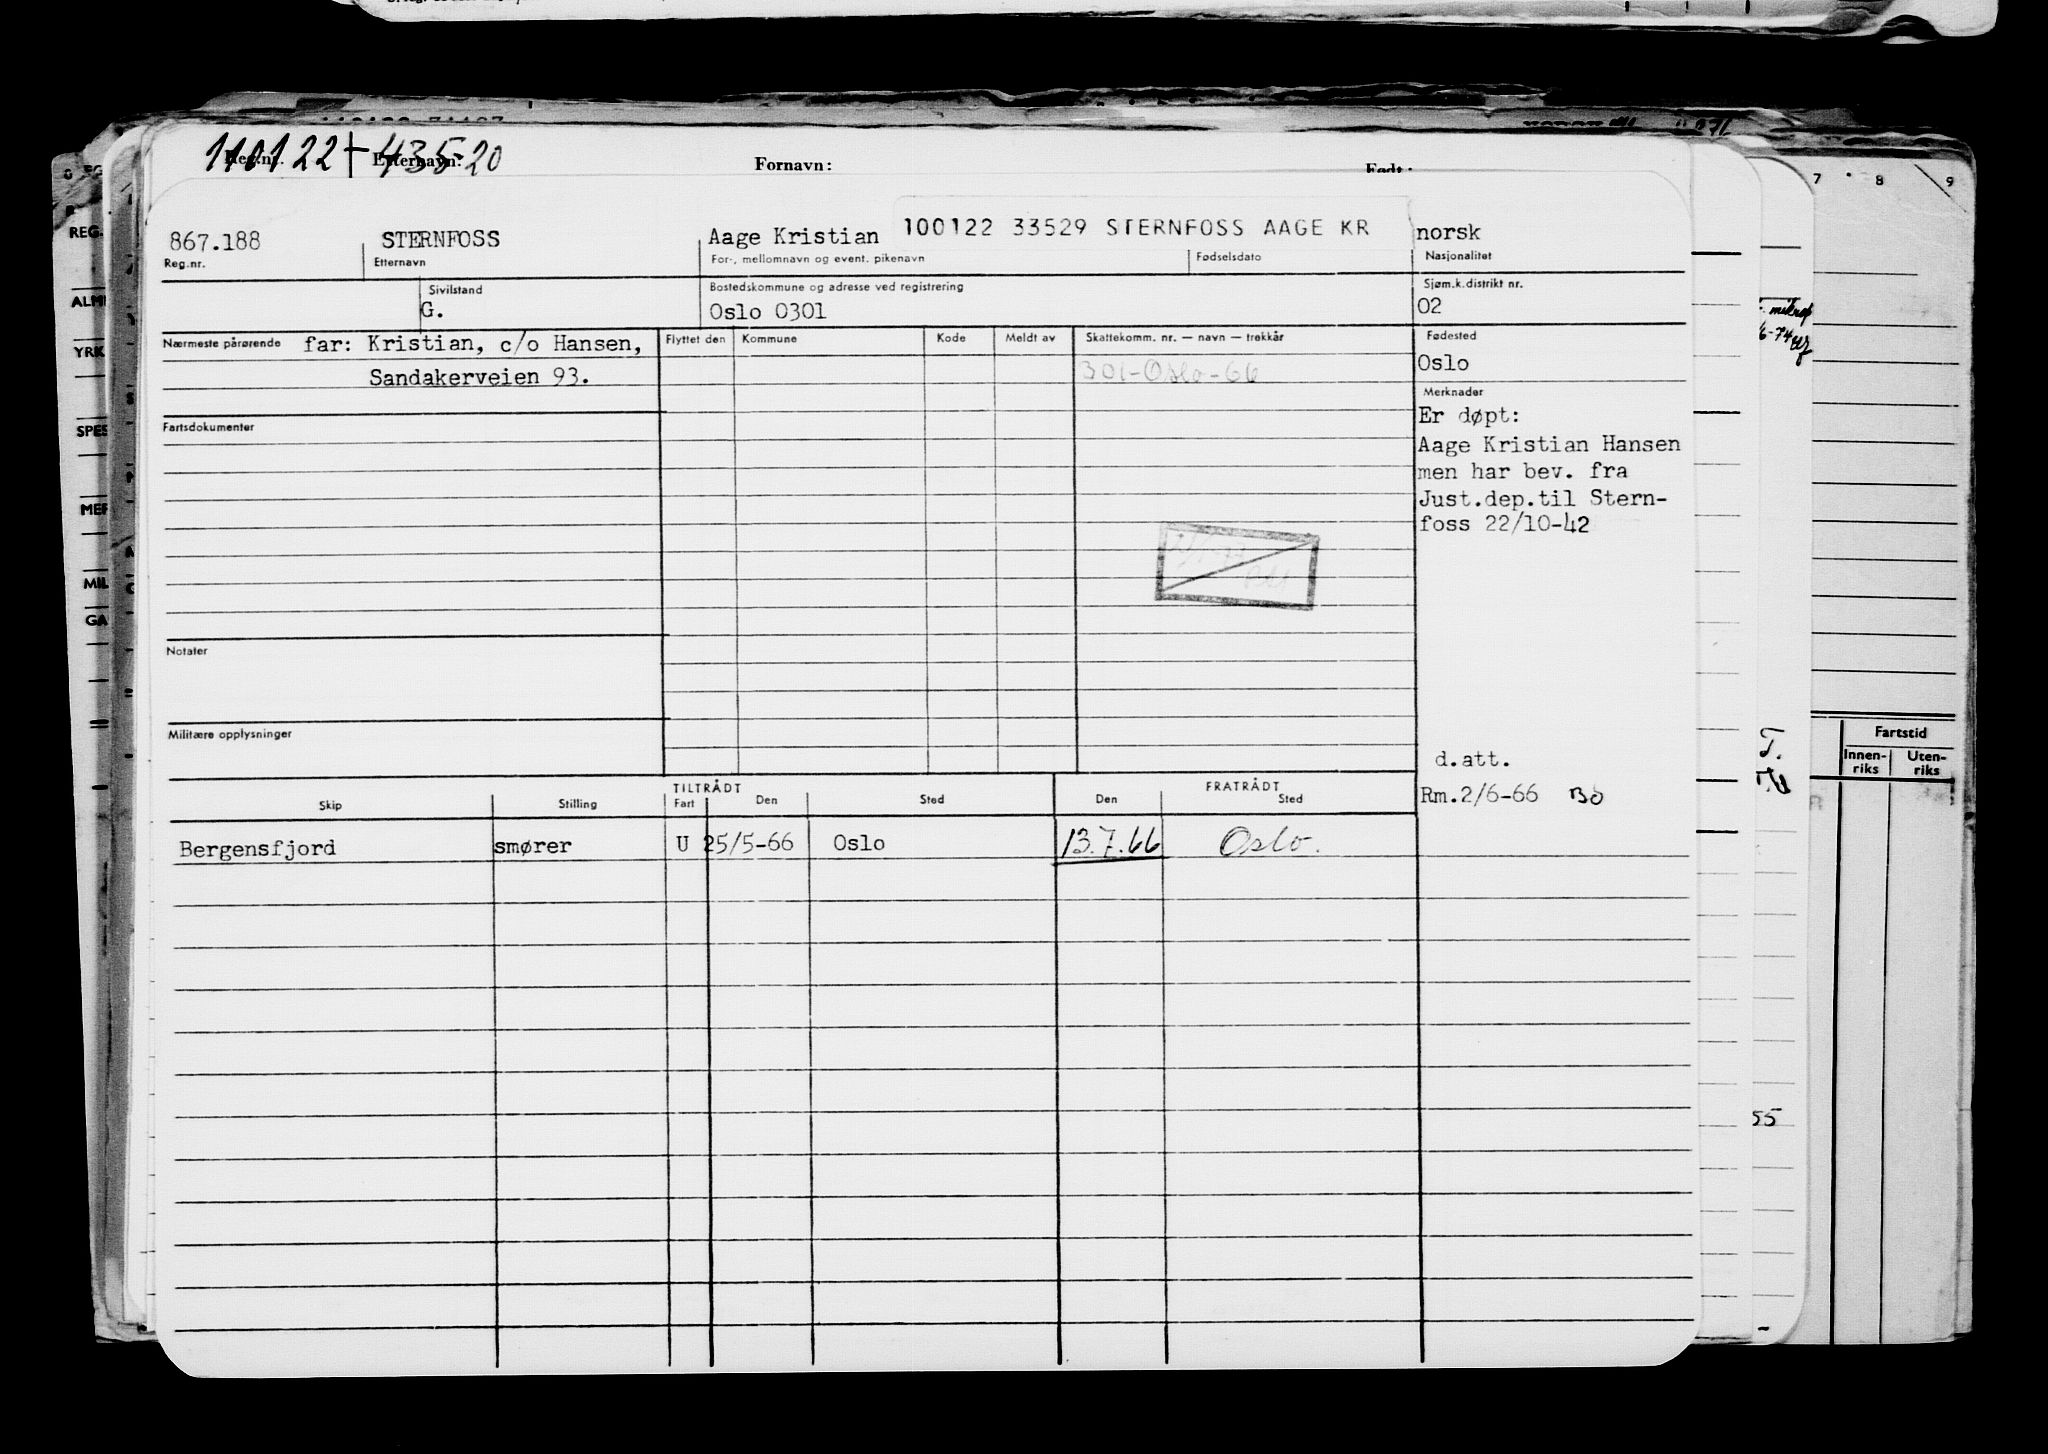 110122 + 43520
Reg.nr. Etternavn: Fornavn: Født:
867.188 STERNFOSS Aage Kristian 100122 33529 STERNFOSS AAGE KR norsk
Reg.nr. Etternavn For-, mellomnavn og event. pikenavn Fødselsdato Nasjonalitet
Sivilstand Bostedskommune og adresse ved registrering Sjøm.k.distrikt nr.
G. Oslo 0301 02
Nærmeste pårørende far: Kristian, c/o Hansen, Flyttet den Kommune Kode Meldt av Skattekomm. nr. — navn — trekkår Fødested
Sandakerveien 93. 301-Oslo-66 Oslo
Merknader
Er døpt:
Fartsdokumenter
Aage Kristian Hansen
men har bev. fra
Just.dep.til Stern-
foss 22/10-42
Notater
Militære opplysninger
d.att.
TILTRÅDT FRATRÅDT
Skip Stilling Fart Den Sted Den Sted Rm.2/6-66 Bö
Bergensfjord smører U 25/5-66 Oslo 13.7.66 Oslo.
REG.
ALM
YRK
SPES
MER
MIL
GA
7 8 9
6-74
T.
Fartstid
Innen-
riks
Uten-
riks
55